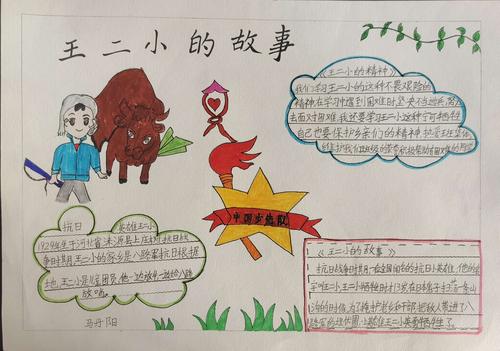 王二小的故事
《王二小的精神》
我们学习王二小的这种不畏艰险的
精神,在学习中遇到困难时坚决不退缩,努力
去面对困难,我还要学习王二小这种宁可牺牲
自己也要保护乡亲们的精神,护
抗日 英雄王二小
1929年生于河北省涞源县上庄村,抗日战
争时期,王二小的家乡是八路军抗日根据
地,王二小是儿童团员,他一边放牛一边给八路
放哨。
中国少先队
《王二小的故事》
抗日战争时期一个全国闻名的抗日小英雄,他的名
字叫王二小,王二小牺牲时才13岁,在日本鬼子扫荡一条山
沟的时候,为了掩护老乡和干部,把敌人带进了八
路军的埋伏圈,小英雄王二小英勇牺牲了。
马丹阳